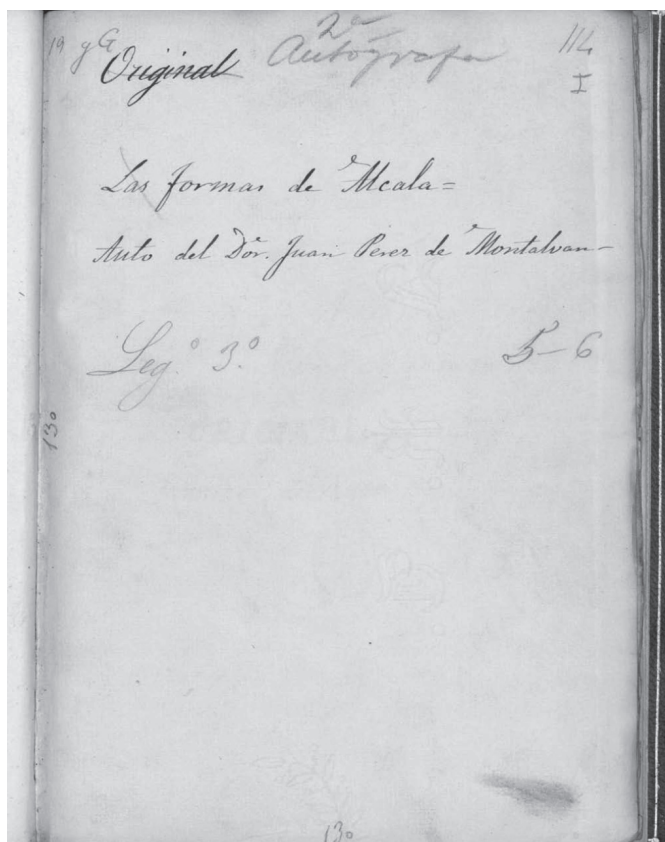 19 y G 2ª 114
Original Autógrafa I
Las formas de Alcala=
Auto del Dor. Juan Perez de Montalvan-
Leg.º 3.º 5-6
130
130